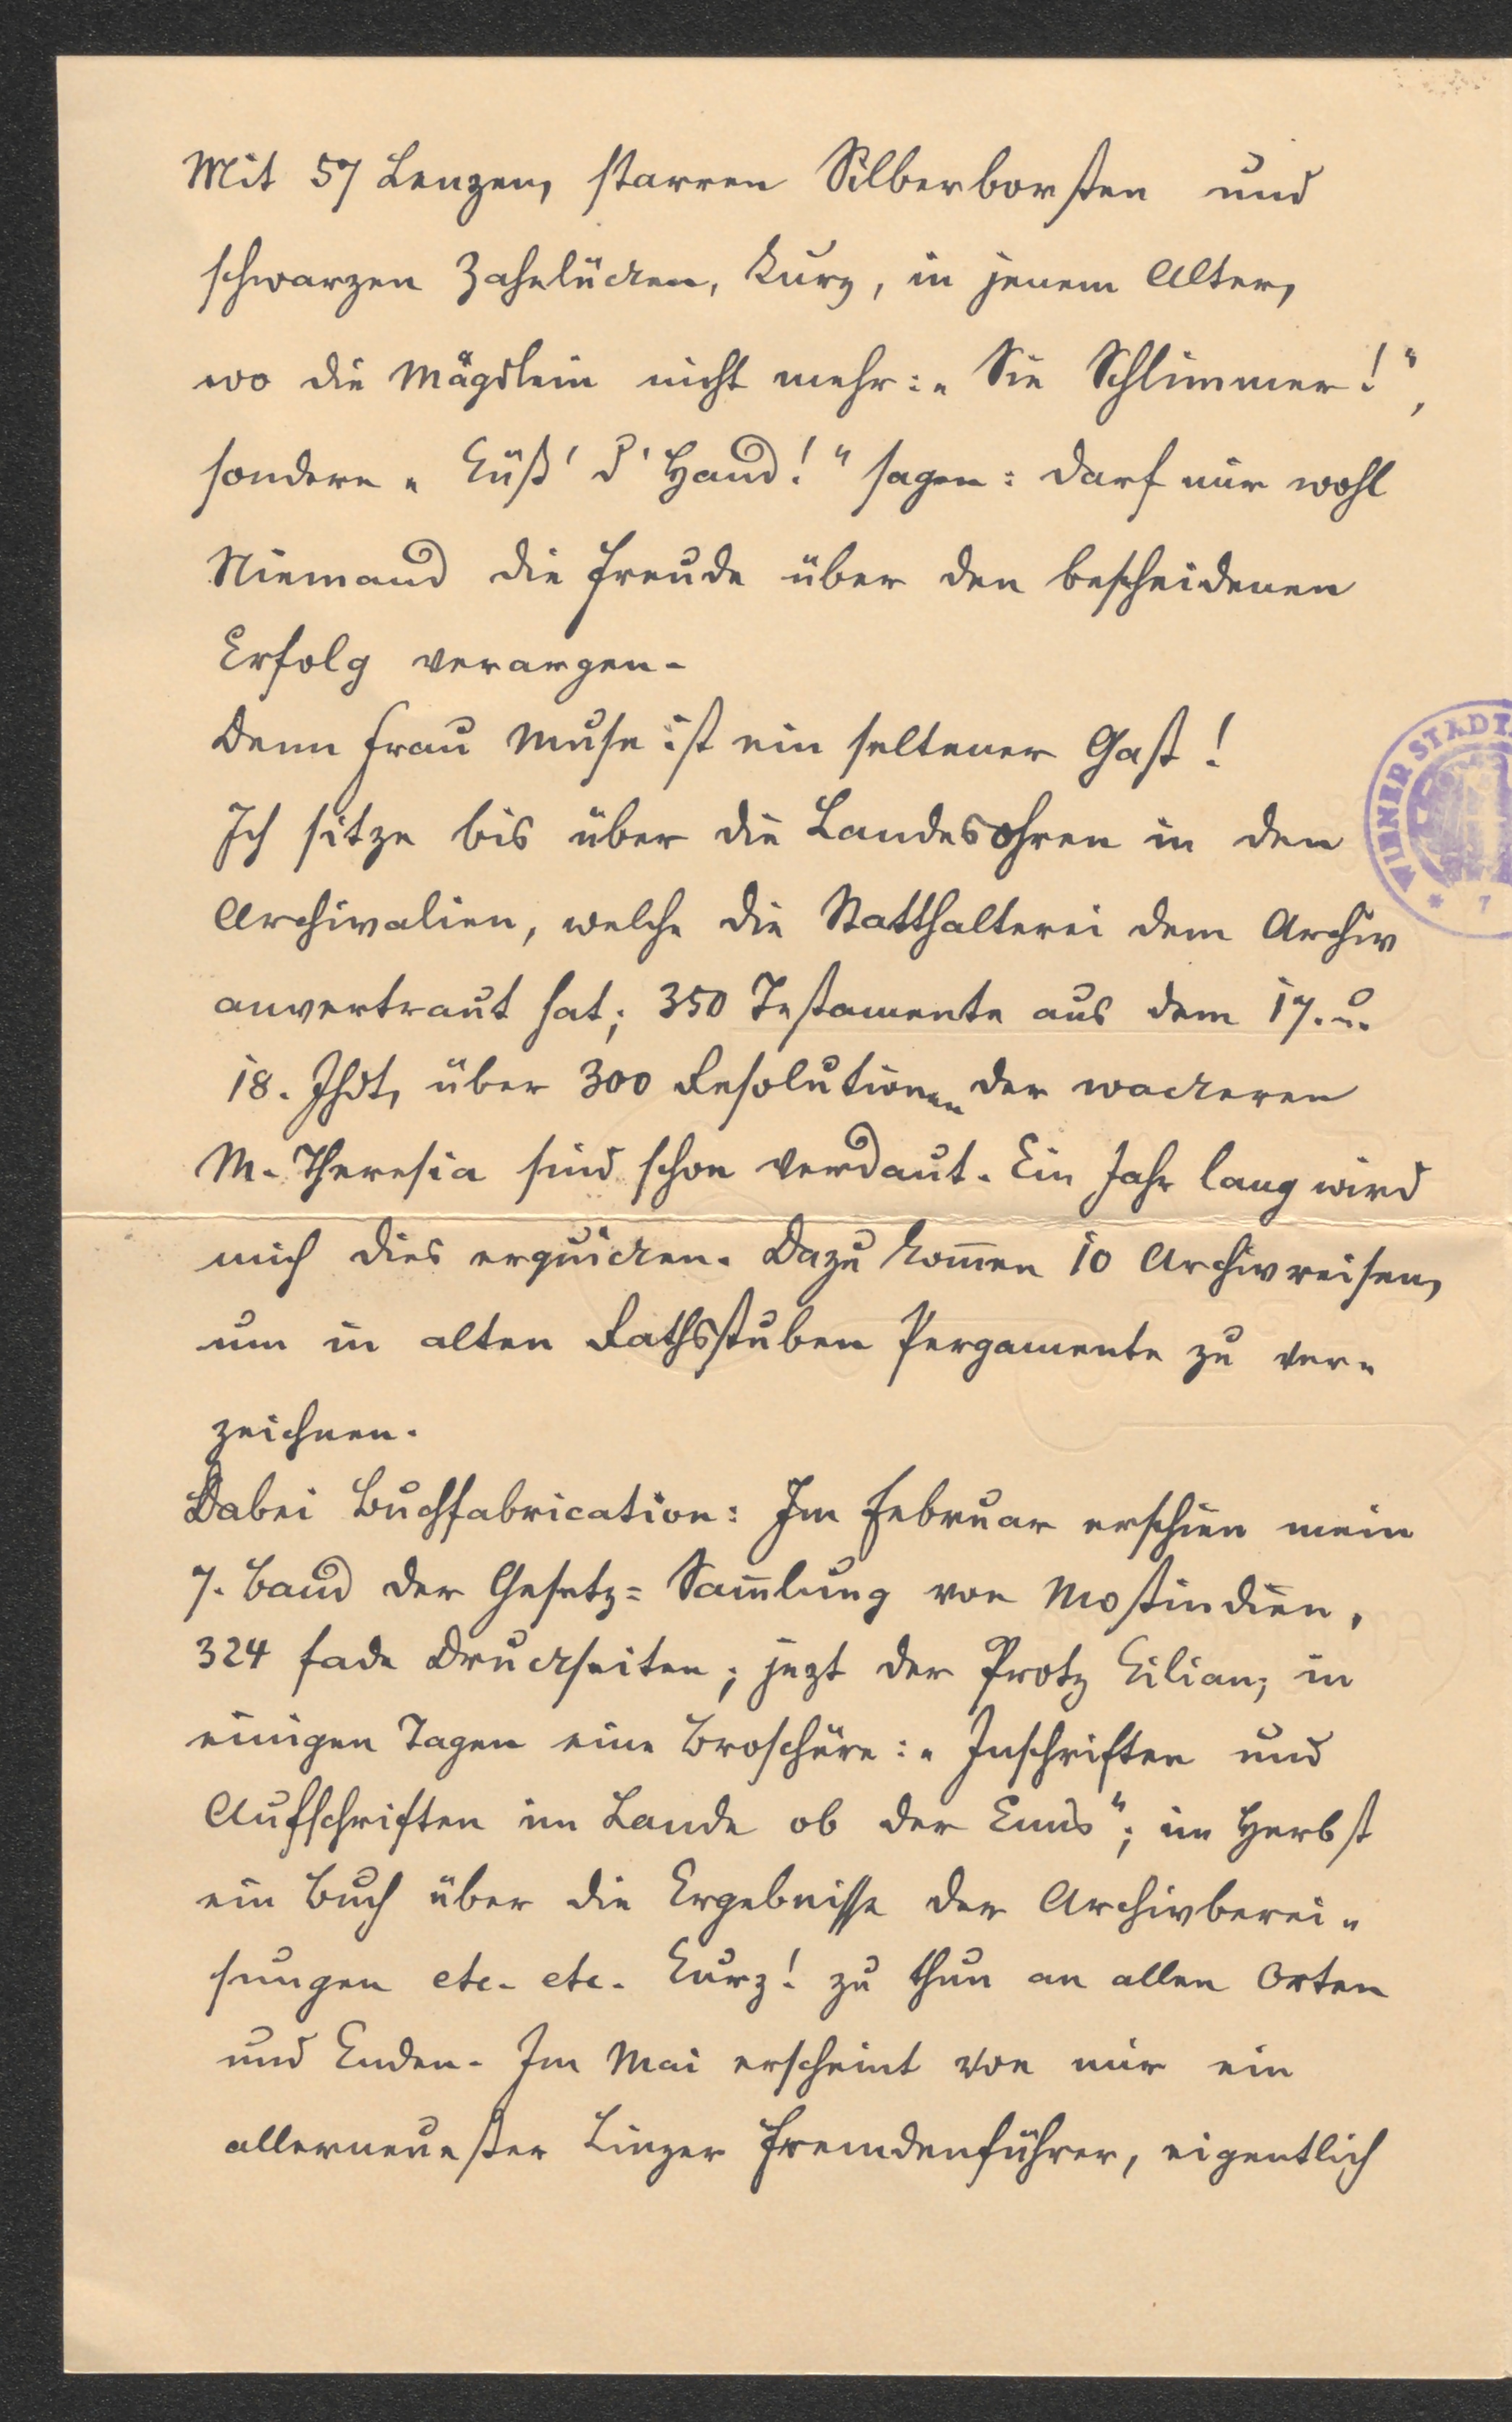 Mit 57 Lenzen, starren Silberborsten und
schwarzen Zahnlücken, kurz, in jenem Alter,
wo die Mägdlein nicht mehr: „Sie Schlimmer!“,
sondern „Küß' d' Hand!“ sagen: darf mir wohl
Niemand die Freude über den bescheidenen
Erfolg verargen.
Denn Frau Muse ist ein seltener Gast!
Ich sitze bis über die Landesohren in den
Archivalien, welche die Statthalterei dem Archiv
anvertraut hat; 350 Testamente aus dem 17. u.
18. Jhdt, über 300 Resolutionen der wackeren
M. Theresia sind schon verdaut. Ein Jahr lang wird
mich dies erquicken. Dazu kom̅en 10 Archivreisen,
um in alten Rathsstuben Pergamente zu ver-
zeichnen.
Dabei Buchfabrication: Im Februar erschien mein
7. Band der Gesetz-Sam̅lung von Mostindien,
324 fade Druckseiten; jezt der Protz Kilian; in
einigen Tagen eine Broschüre: „Inschriften und
Aufschriften im Lande ob der Enns“; im Herbst
ein Buch über die Ergebnisse der Archivberei-
sungen etc. etc. Kurz! zu thun an allen Orten
und Enden. Im Mai erscheint von mir ein
allerneuester Linzer Fremdenführer, eigentlich
WIENER STADT
* 7